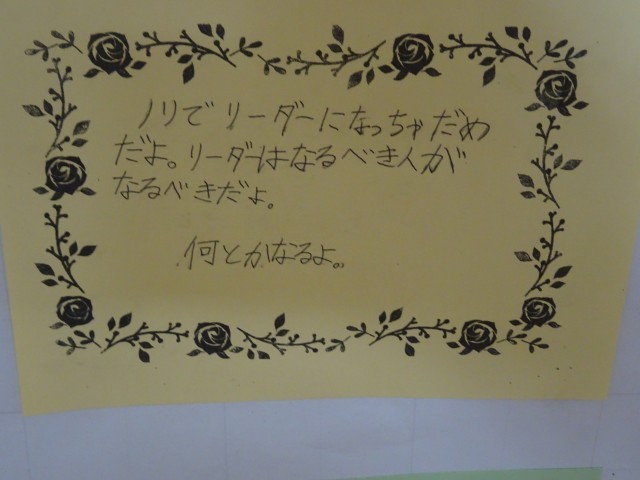 ノリでリーダーになっちゃだめ
だよ。リーダーはなるべき人が
なるべきだよ。
何とかなるよ。